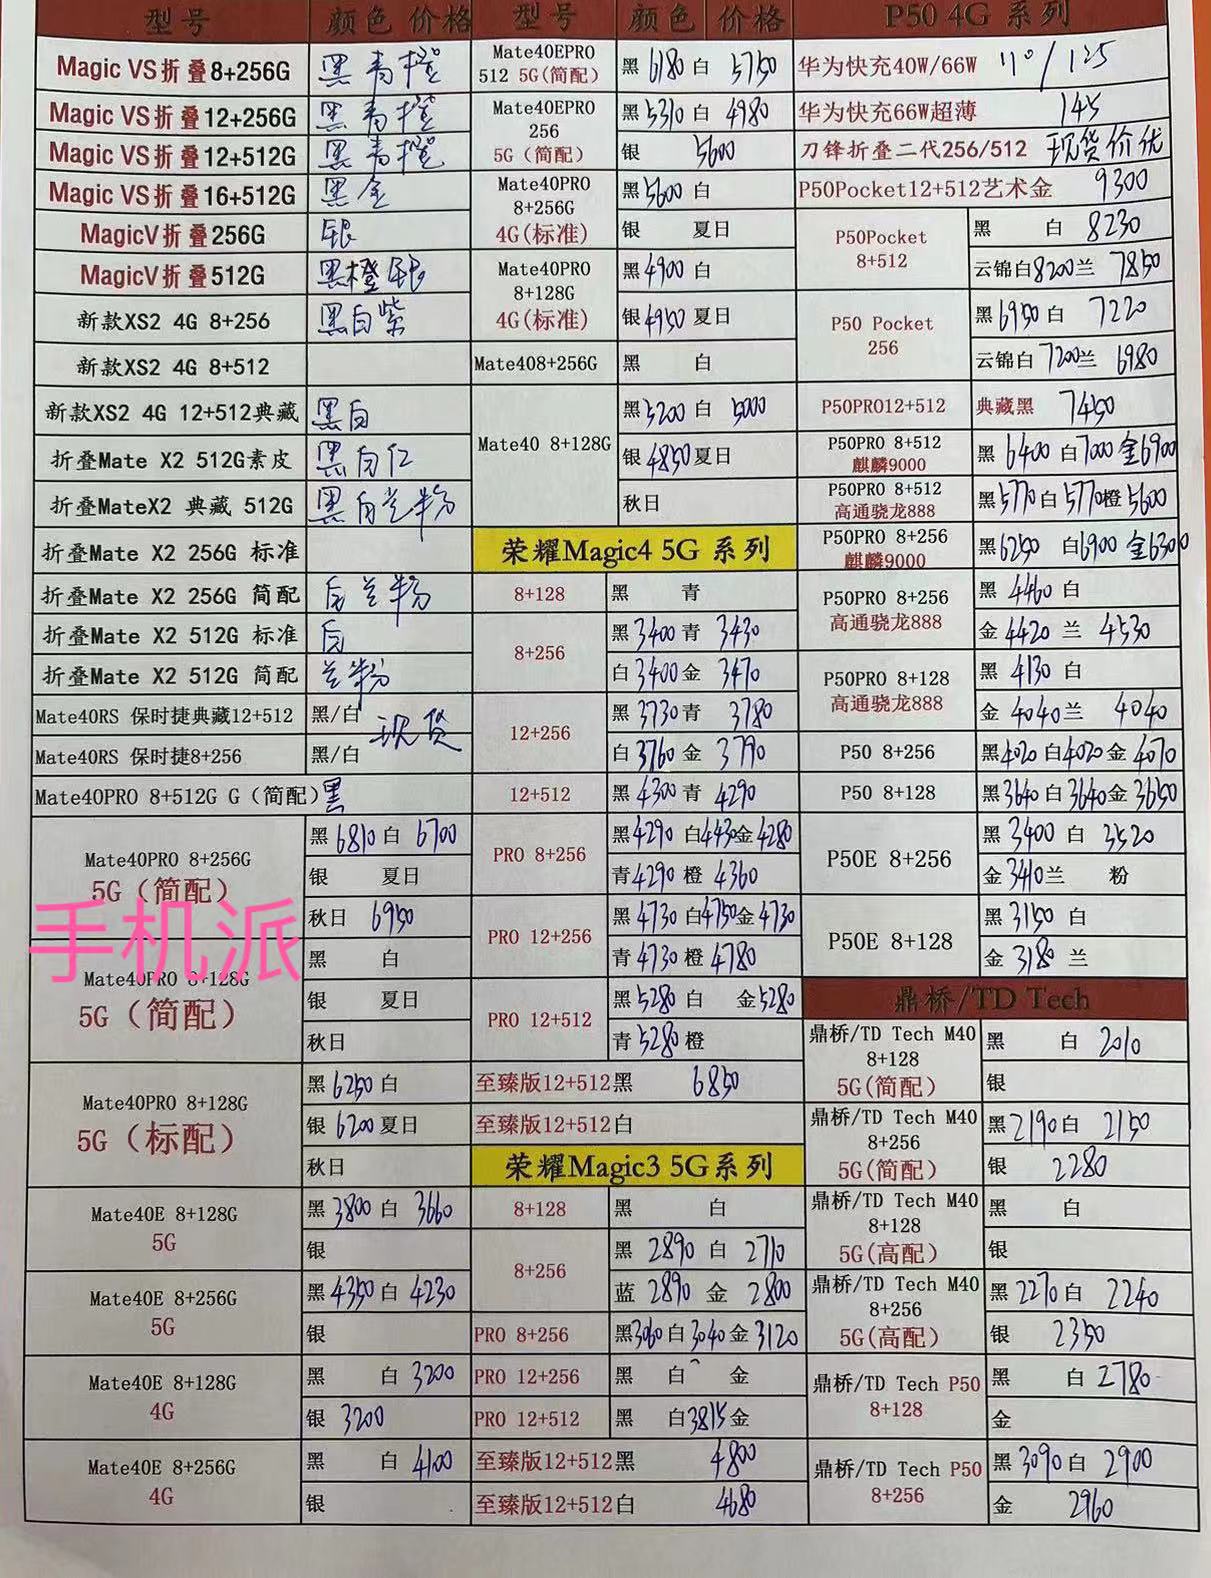 型号 颜色 价格
Magic VS折叠8+256G 黑 青 橙
Magic VS折叠12+256G 黑 青 橙
Magic VS折叠12+512G 黑 青 橙
Magic VS折叠16+512G 黑 金
MagicV折叠256G 银
MagicV折叠512G 黑橙银
新款XS2 4G 8+256 黑白紫
新款XS2 4G 8+512
新款XS2 4G 12+512典藏 黑白
折叠Mate X2 512G素皮 黑白红
折叠MateX2 典藏 512G 黑白兰粉
折叠Mate X2 256G 标准
折叠Mate X2 256G 简配 白兰粉
折叠Mate X2 512G 标准 白
折叠Mate X2 512G 简配 兰粉
Mate40RS 保时捷典藏12+512 黑/白
现货
Mate40RS 保时捷8+256 黑/白
Mate40PRO 8+512G G（简配）黑
Mate40PRO 8+256G
5G（简配）
黑 6810 白 6700
银 夏日
秋日 6950
手机派
Mate40PRO 8+128G
5G（简配）
黑 白
银 夏日
秋日
Mate40PRO 8+128G
5G（标配）
黑 6250 白
银 6200 夏日
秋日
Mate40E 8+128G
5G
黑 3800 白 3660
银
Mate40E 8+256G
5G
黑 4350 白 4230
银
Mate40E 8+128G
4G
黑 白 3200
银 3200
Mate40E 8+256G
4G
黑 白 4100
银
型号 颜色 价格
Mate40EPRO
512 5G(简配)
黑 6180 白 5750
Mate40EPRO
256
5G（简配）
黑 5310 白 4980
银 5600
Mate40PRO
8+256G
4G(标准)
黑 5600 白
银 夏日
Mate40PRO
8+128G
4G(标准)
黑 4900 白
银 4950 夏日
Mate408+256G 黑 白
Mate40 8+128G
黑 5200 白 5000
银 4850 夏日
秋日
荣耀Magic4 5G 系列
8+128 黑 青
8+256
黑 3400 青 3430
白 3400 金 3470
12+256
黑 3730 青 3780
白 3760 金 3790
12+512 黑 4300 青 4290
PRO 8+256
黑 4290 白 4430 金 4280
青 4290 橙 4360
PRO 12+256
黑 4730 白 4750 金 4730
青 4730 橙 4780
PRO 12+512
黑 5280 白 金 5280
青 5280 橙
至臻版12+512黑 6850
至臻版12+512白
荣耀Magic3 5G系列
8+128 黑 白
8+256
黑 2890 白 2710
蓝 2890 金 2800
PRO 8+256 黑 3060 白 3040 金 3120
PRO 12+256 黑 白 金
PRO 12+512 黑 白 3815 金
至臻版12+512黑 4800
至臻版12+512白 4680
P50 4G 系列
华为快充40W/66W 110/125
华为快充66W超薄 145
刀锋折叠二代256/512 现货价优
P50Pocket12+512艺术金 9300
P50Pocket
8+512
黑 白 8230
云锦白 8200 兰 7850
P50 Pocket
256
黑 6950 白 7220
云锦白 7200 兰 6980
P50PRO12+512 典藏黑 7450
P50PRO 8+512
麒麟9000
黑 6400 白 7000 金 6900
P50PRO 8+512
高通骁龙888
黑 5770 白 5770 橙 5600
P50PRO 8+256
麒麟9000
黑 6250 白 6900 金 6300
P50PRO 8+256
高通骁龙888
黑 4460 白
金 4420 兰 4530
P50PRO 8+128
高通骁龙888
黑 4130 白
金 4040 兰 4040
P50 8+256 黑 4020 白 4020 金 4070
P50 8+128 黑 3640 白 3640 金 3650
P50E 8+256
黑 3400 白 3520
金 3410 兰 粉
P50E 8+128
黑 3150 白
金 3180 兰
鼎桥/TD Tech
鼎桥/TD Tech M40
8+128
5G(简配)
黑 白 2010
银
鼎桥/TD Tech M40
8+256
5G(简配)
黑 2190 白 2150
银 2280
鼎桥/TD Tech M40
8+128
5G(高配)
黑 白
银
鼎桥/TD Tech M40
8+256
5G(高配)
黑 2270 白 2240
银 2350
鼎桥/TD Tech P50
8+128
黑 白 2780
金
鼎桥/TD Tech P50
8+256
黑 3090 白 2900
金 2960